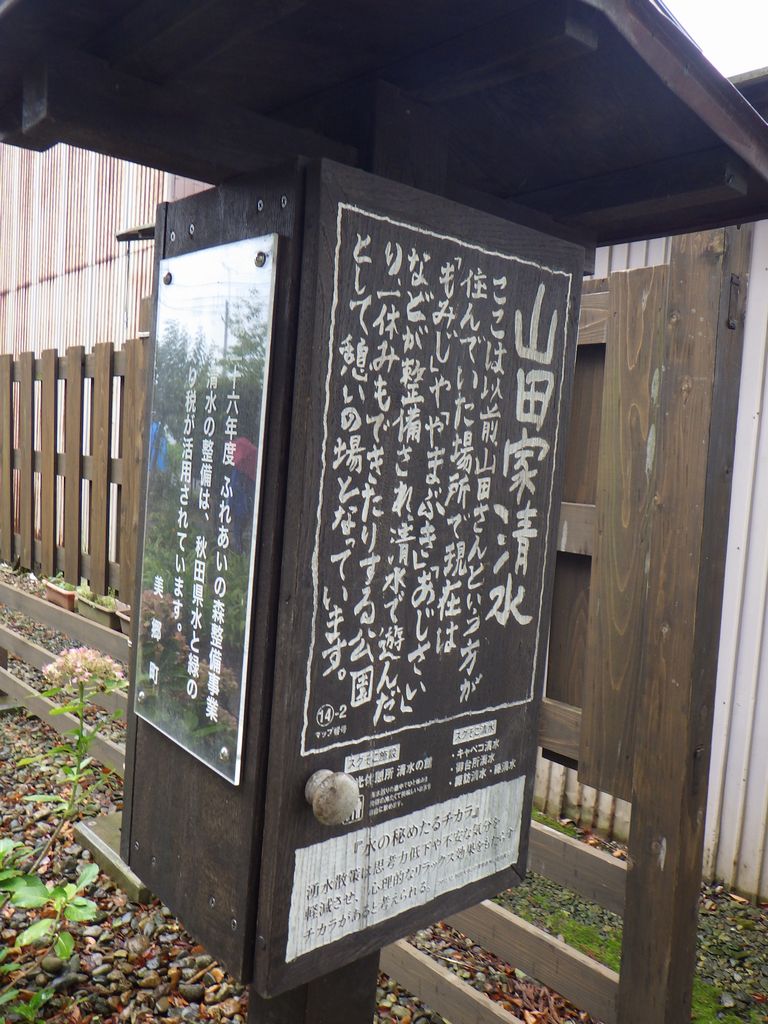 山田家清水
ここは以前山田さんという方が
住んでいた場所で現在は
「もみじ」や「やまぶき」「あじさい」
などが整備され、清水で遊んだ
り、一休みもできたりする公園
として憩いの場となっています。
⑭-2
マップ番号
スグそこ清水
・キャペコ清水
・御台所清水
・諏訪清水・藤清水
スグそこ施設
休憩所 清水の館
『水の秘めたるチカラ』
湧水散策は思考力低下や不安な気分を
軽減させ、心理的なリラックス効果をもたらす
チカラがあると考えられる。
十六年度 ふれあいの森整備事業
清水の整備は、秋田県水と緑の
税が活用されています。
美郷町